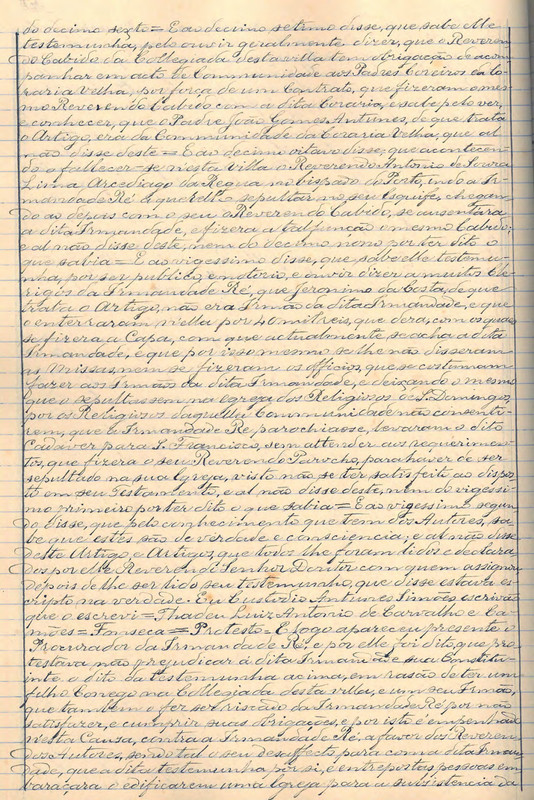 do decimo sexto = E ao decimo setimo disse, que sabe elle
testemunha, pelo ouvir geralmente dizer, que o Reveren-
do Cabido da Collegiada desta villa tem obrigação de acom-
panhar em acto de Communidade aos Padres Coreiros da Co-
raria velha, por força de um Contrato, que fizeram o mes-
mo Reverendo Cabido com a dita Coraria, e sabe pelo ver,
e conhecer, que o Padre João Gomes Antunes, de que trata
o Artigo, era da Communidade da Coraria velha, e que al
não disse deste = E ao decimo oitavo disse, que acontecen-
do a fallecer-se nesta villa o Reverendo Antonio de Souza
Lima, Arcediago da Regua no bispado do Porto, indo a Ir-
mandade Ré a querello sepultar no seu esquife, chegan-
do ao depois com o seu o Reverendo Cabido, se ausentára
a dita Irmandade, e fizera a tal função o mesmo Cabido;
e al não disse deste, nem do decimo nono por ter dito o
que sabia = E ao vigessimo disse, que sabe elle testemu-
nha, por ser publico, e notorio, e ouvir dizer a muitos Cle-
rigos da Irmandade Ré, que Jeronimo da Costa, de que
trata o Artigo, não era Irmão da dita Irmandade, e que
o enterraram nella por 40 mil reis, que dera, com os quaes
se fizera a Capa, com que actualmente se acha a dita
Irmandade, e que por isso mesmo se lhe não disseram
as Missas, nem se fizeram os officios, que se costumam
fazer aos Irmãos da dita Irmandade, e deixando o mesmo
que o sepultassem na egreja dos Religiosos de S. Domingos,
por os Religiosos daquella Communidade não consenti-
rem, que a Irmandade Ré parochiasse, levaram o dito
Cadaver para S. Francisco, sem attender aos requerimen-
tos, que fizera o seu Reverendo Parocho, para haver de ser
sepultado na sua Igreja, visto não se ter satisfeito ao dispos-
to em seu Testamento, e al não disse deste, nem do vigessi-
mo primeiro por ter dito o que sabia = E ao vigessimo segun-
do disse, que pelo conhecimento que tem dos Autores, sa-
be que estes são de verdade e consciencia, e al não disse
deste Artigo, e Artigos, que todos lhe foram lidos e declara-
dos por elle Reverendo Senhor Doutor com quem assignou
depois de lhe ser lido seu testemunho, que disse estava es-
cripto na verdade. Eu Custodio Antunes Simões escrivão
que o escrevi = Thadeu Luiz Antonio de Carvalho e Ca-
mões = Fonseca = Protesto = E logo appareceu presente o
Procurador da Irmandade Ré, e por elle foi dito, que pro-
testava não prejudicar á dita Irmandade e sua Constitu-
inte o dito da testemunha acima, em rasão de ter um
filho Conego na Collegiada desta villa, e um seu Irmão,
que tambem o fez ser riscado da Irmandade Ré por não
satisfazer, e cumprir suas obrigações, e por isto é empenhado
nesta Causa, contra a Irmandade Ré: a favor dos Reveren-
dos Autores, sendo tal o seu desaffecto para com a dita Irman-
dade, que a dita testemunha por si, e entrepostas pessoas em-
baraçara o edificarem uma Igreja para a subsistencia da